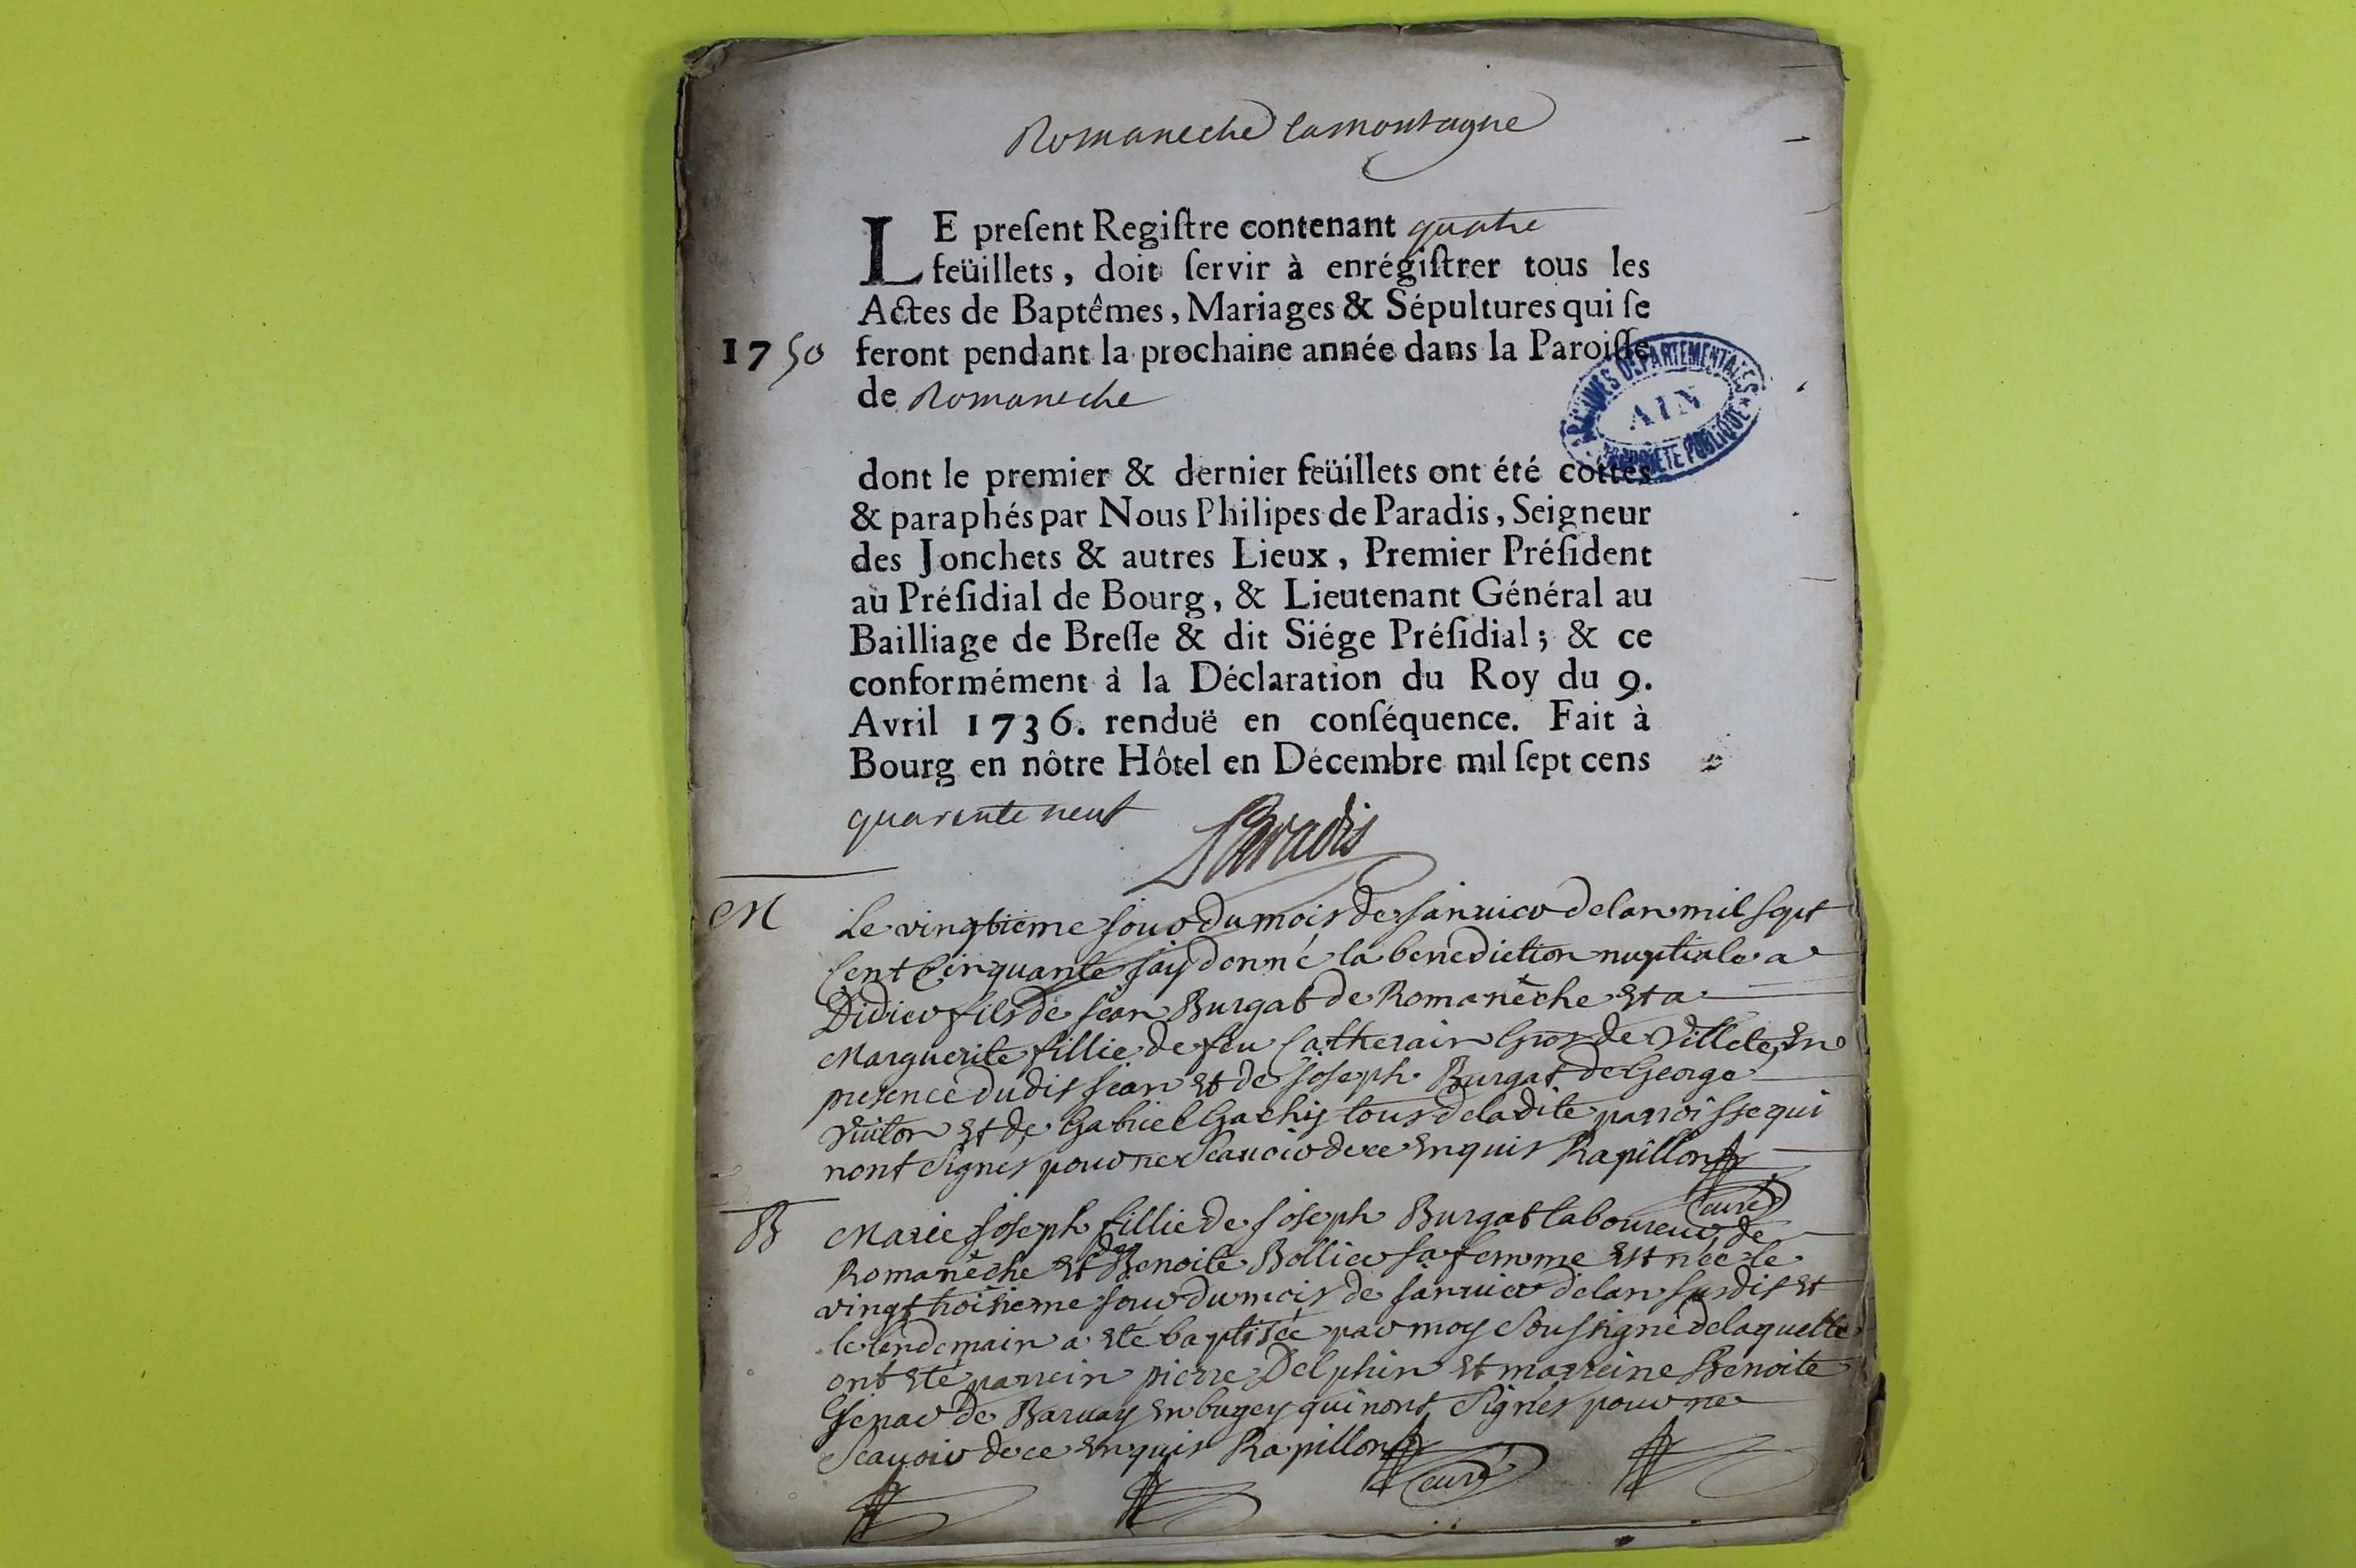 Romaneche lamontagne
LE preſent Regiſtre contenant quatre
feüillets, doit ſervir à enrégiſtrer tous les
Actes de Baptêmes, Mariages & Sépultures qui ſe
1750 feront pendant la prochaine année dans la Paroiſſe
de Romaneche
ARCHIVES DÉPARTEMENTALES
AIN
PROPRIÉTÉ PUBLIQUE
dont le premier & dernier feüillets ont été cottés
& paraphés par Nous Philipes de Paradis, Seigneur
des Jonchets & autres Lieux, Premier Préſident
au Préſidial de Bourg, & Lieutenant Général au
Bailliage de Breſſe & dit Siége Préſidial; & ce
conformément à la Déclaration du Roy du 9.
Avril 1736. renduë en conſéquence. Fait à
Bourg en nôtre Hôtel en Décembre mil ſept cens
quarente neuf
Paradis
M Le vingtieme jour du mois de janvier de lan mil sept
Cent Cinquante jay donné la benediction nuptiale a
Didier fils de jean Burgat de Romanêche et a
Marguerite fillie de feu Catherain Gros de Villete, En
presence dudit jean et de joseph Burgat de George
Vuiton et de Gabriel Gachy tous de ladite parroisse qui
nont Signés pour ne Scauoir de ce Enquis Rapillon
Curé
B Marie joseph fillie de joseph Burgat laboureur de
Romanêche et de Benoite Bollier sa femme est née le
vingt troisieme jour du mois de janvier de lan susdit et
le lendemain a eté baptisée par moy Soussigné de laquelle
ont eté parrein pierre Delphin et marreine Benoite
Genar de Baruay en bugey qui nont Signés pour ne
Scauoir de ce Enquis Rapillon
Curé